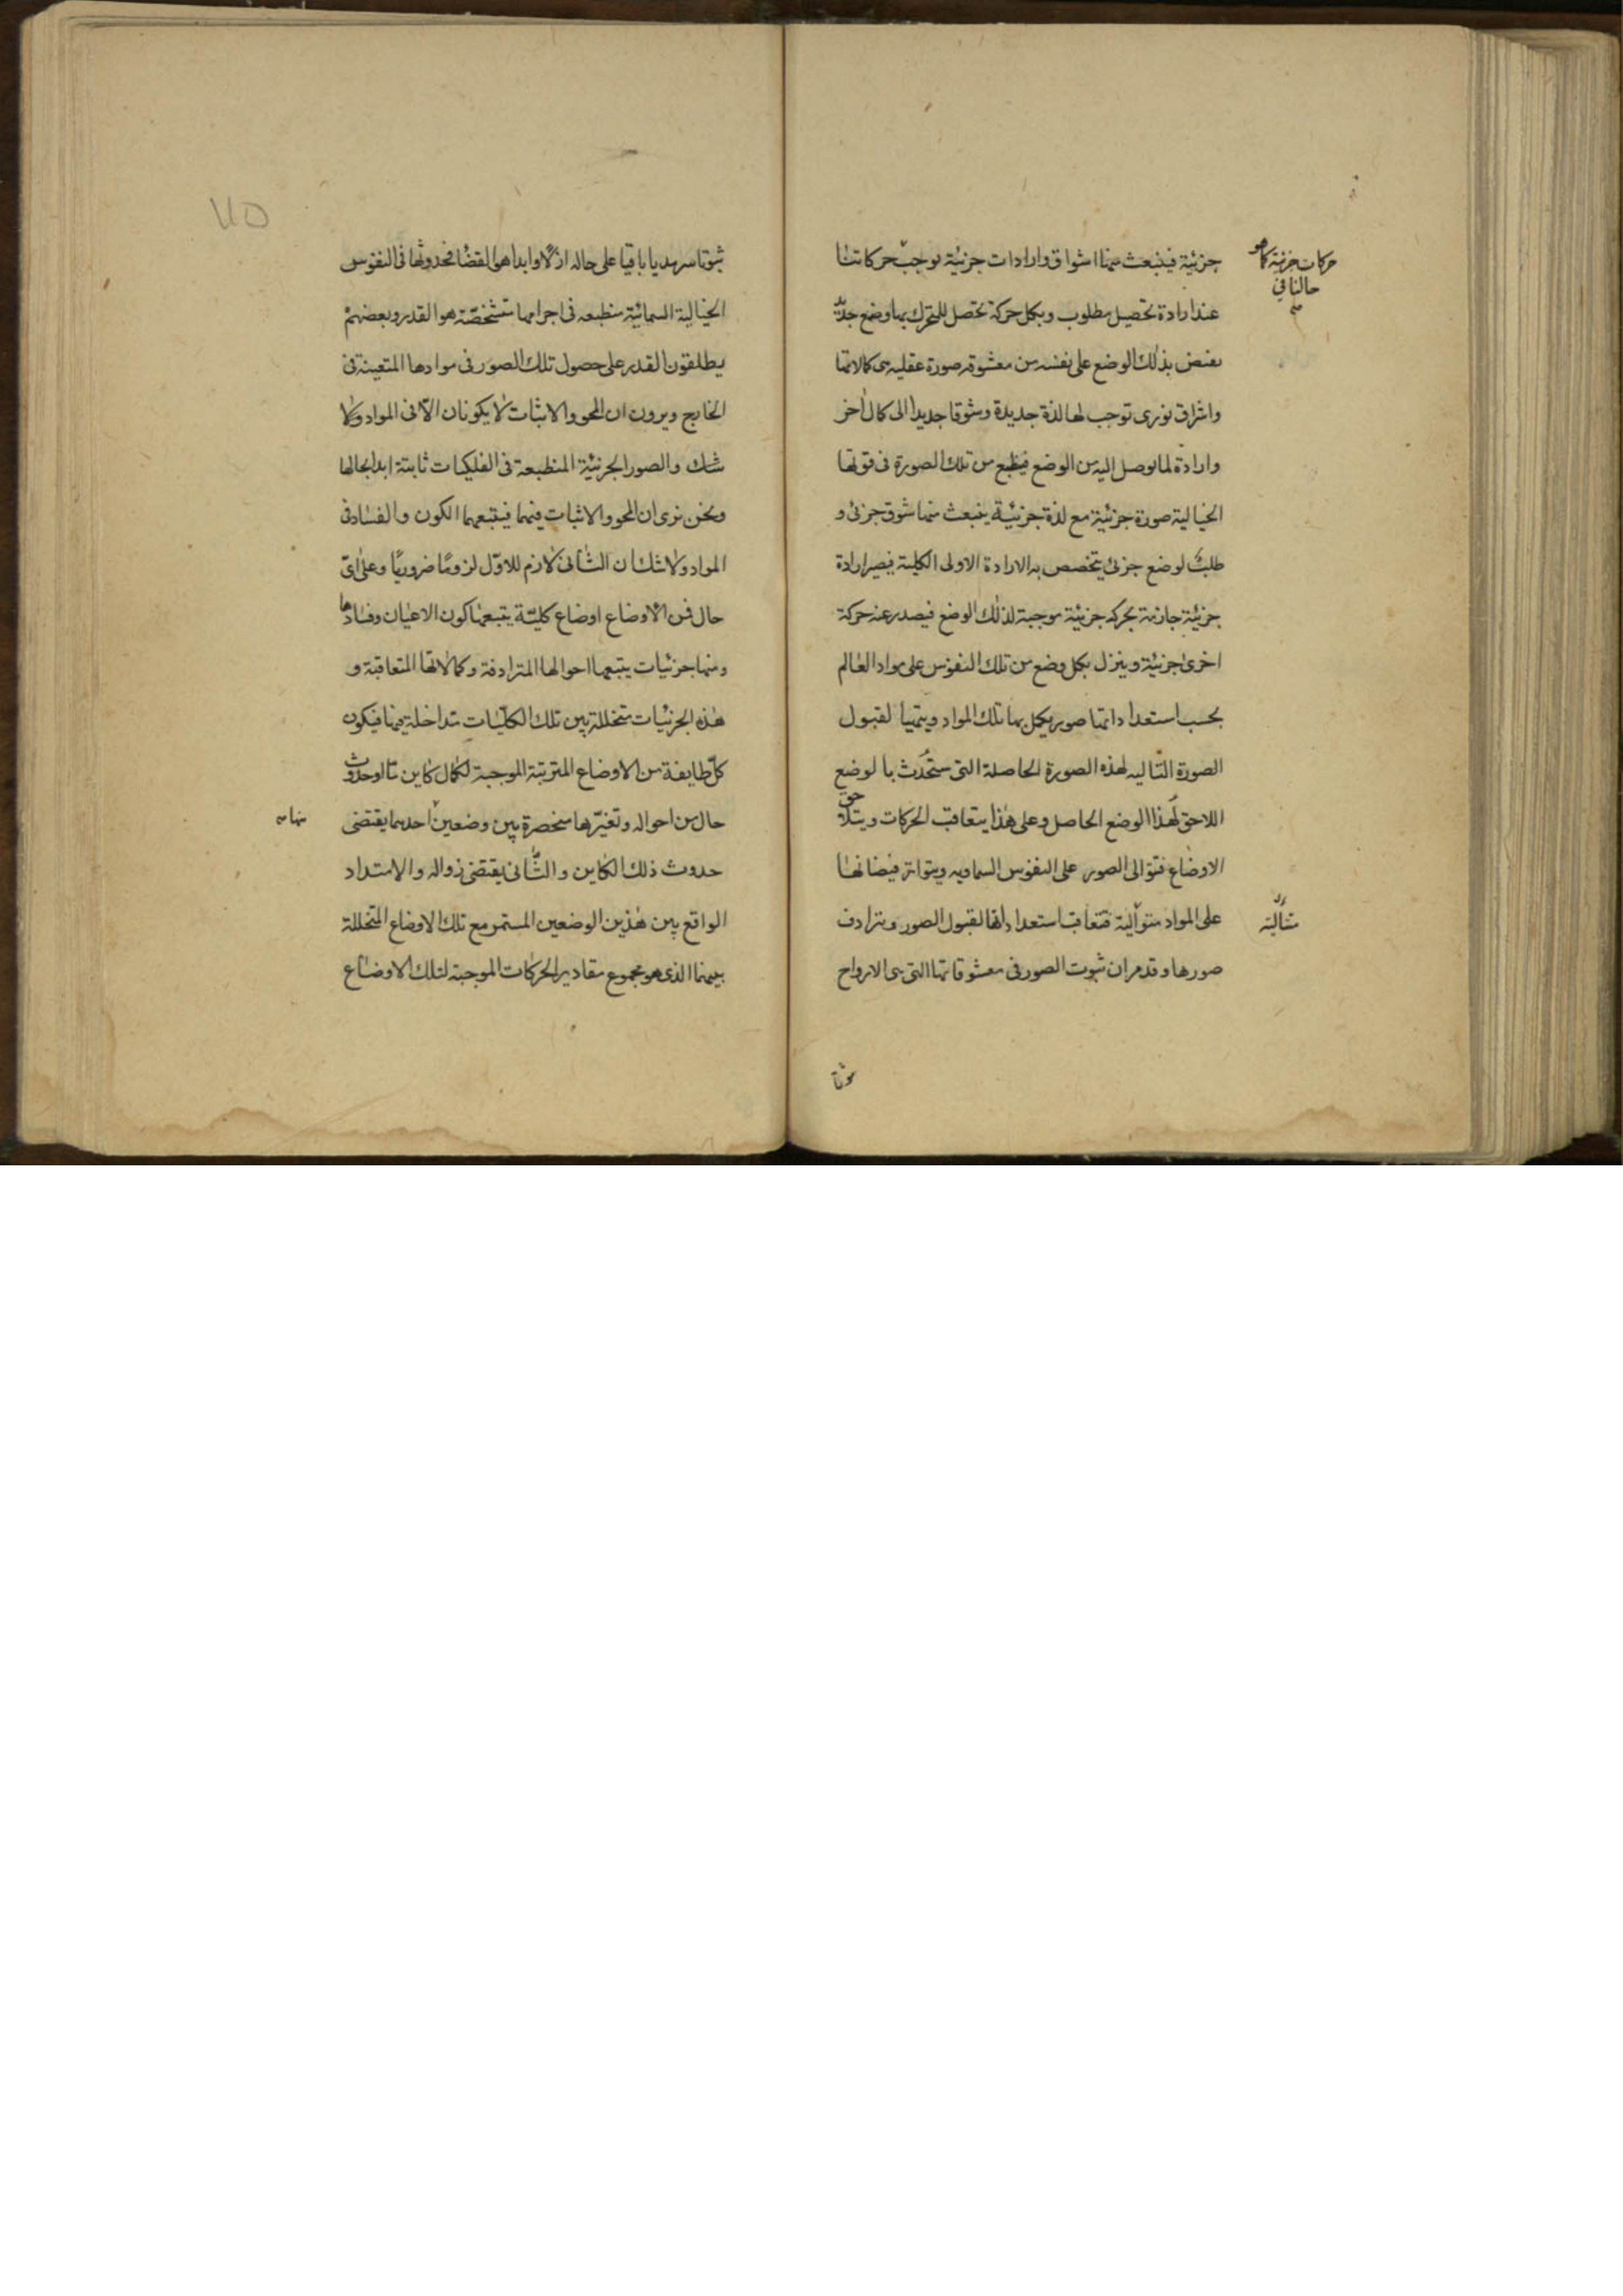 جزئية فينبعث منها اشواق وارادات جزئية توجب حركاتنا
عند ارادة تحصيل مطلوب وبكل حركة تحصل للمتحرك بها وضع جديد
بذلك الوضع على نفسه من معشوقه صورة عقليه هى كمالاتها
واشراق نورى توجب لها لذة جديدة وشوقا جديدا الى كمال اخر
وارادة لما توصل اليه من الوضع فينطبع من تلك الصورة فى قوتها
الخيالية صورة جزئية مع لذة جزئية ينبعث منها شوق جزئى و
طلب لوضع جزئى يتخصص به الارادة الاولى الكلية فيصير ارادة
جزئية جازمة بحركه جزئية موجبة لذلك الوضع فيصدر عنه حركة
اخرى جزئية وينزل بكل وضع من تلك النفوس على مواد العالم
بحسب استعداداتها صور يكمل بها تلك المواد ويتهيأ لقبول
الصورة التاليه لهذه الصورة الحاصلة التى ستحدث بالوضع
اللاحق لهذا الوضع الحاصل وعلى هذا يتعاقب الحركات ويتلاحق
الاوضاع فتوالى الصور على النفوس السماويه ويتواتر فيضانها
على المواد متوالية فتعاقب استعداداتها لقبول الصور وتترادف
صورها وقد مر ان ثبوت الصور فى معشوقاتها التى هى الارواح
حركات جزئية كما هو
حالنا فى
متتالية
ثبوتا
ثبوتا سرمديا باقيا على حاله ازلا وابدا هو القضا فحدوثها فى النفوس
الخيالية السمائية منطبعه فى اجرامها متشخصة هو القدر وبعضهم
يطلقون القدر على حصول تلك الصور فى موادها المتعينة فى
الخارج ويرون ان المحو والاثبات لا يكونان الا فى المواد ولا
شك والصور الجزئية المنطبعة فى الفلكيات ثابتة ابدا بحالها
ونحن نرى ان المحو والاثبات فيهما فيتبعهما الكون والفساد فى
المواد ولا شك ان الثانى لازم للاول لزوما ضروريا وعلى اى
حال فمن الاوضاع اوضاع كلية يتبعها كون الاعيان وفسادها
ومنها جزئيات يتبعها احوالها المترادفة وكمالاتها المتعاقبة و
هذه الجزئيات متخللة بين تلك الكليات متداخلة فيها فيكون
كل طايفة من الاوضاع المترتبة الموجبة لكمال كاين ما او حدوث
حال من احواله وتغيرها منحصرة بين وضعين احدهما يقتضى
حدوث ذلك الكاين والثانى يقتضى زواله والامتداد
الواقع بين هذين الوضعين المستمر مع تلك الاوضاع المتخللة
بينهما الذى هو مجموع مقادير الحركات الموجبة لتلك الاوضاع
منها